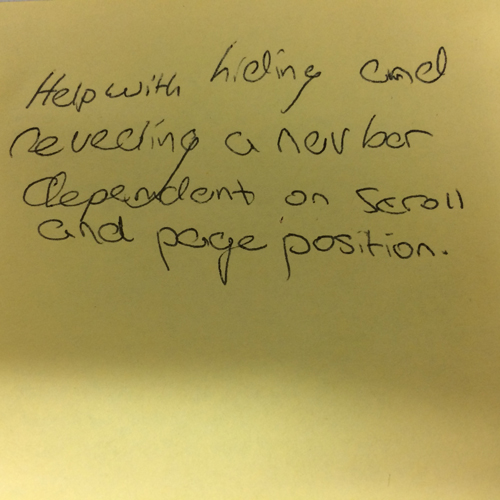 Help with hiding and
revealing a nav bar
dependent on scroll
and page position.